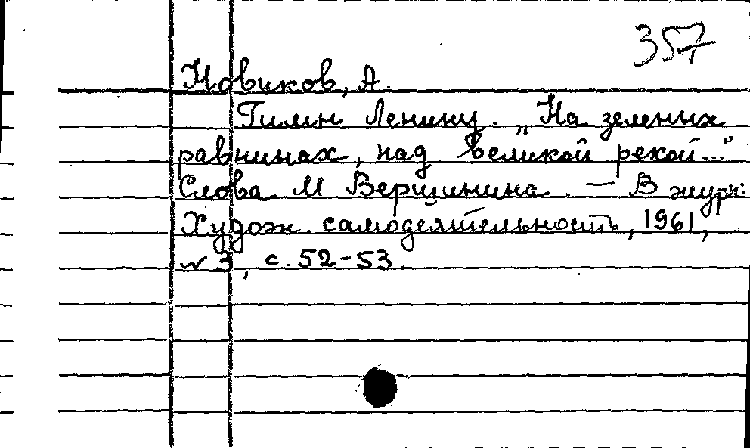 357
Новиков, А.
Гимн Ленину. „На зеленых
равнинах, над великой рекой..."
Слова М Вершинина. — В журн:
Худож. самодеятельность, 1961,
№ 3, с. 52-53.